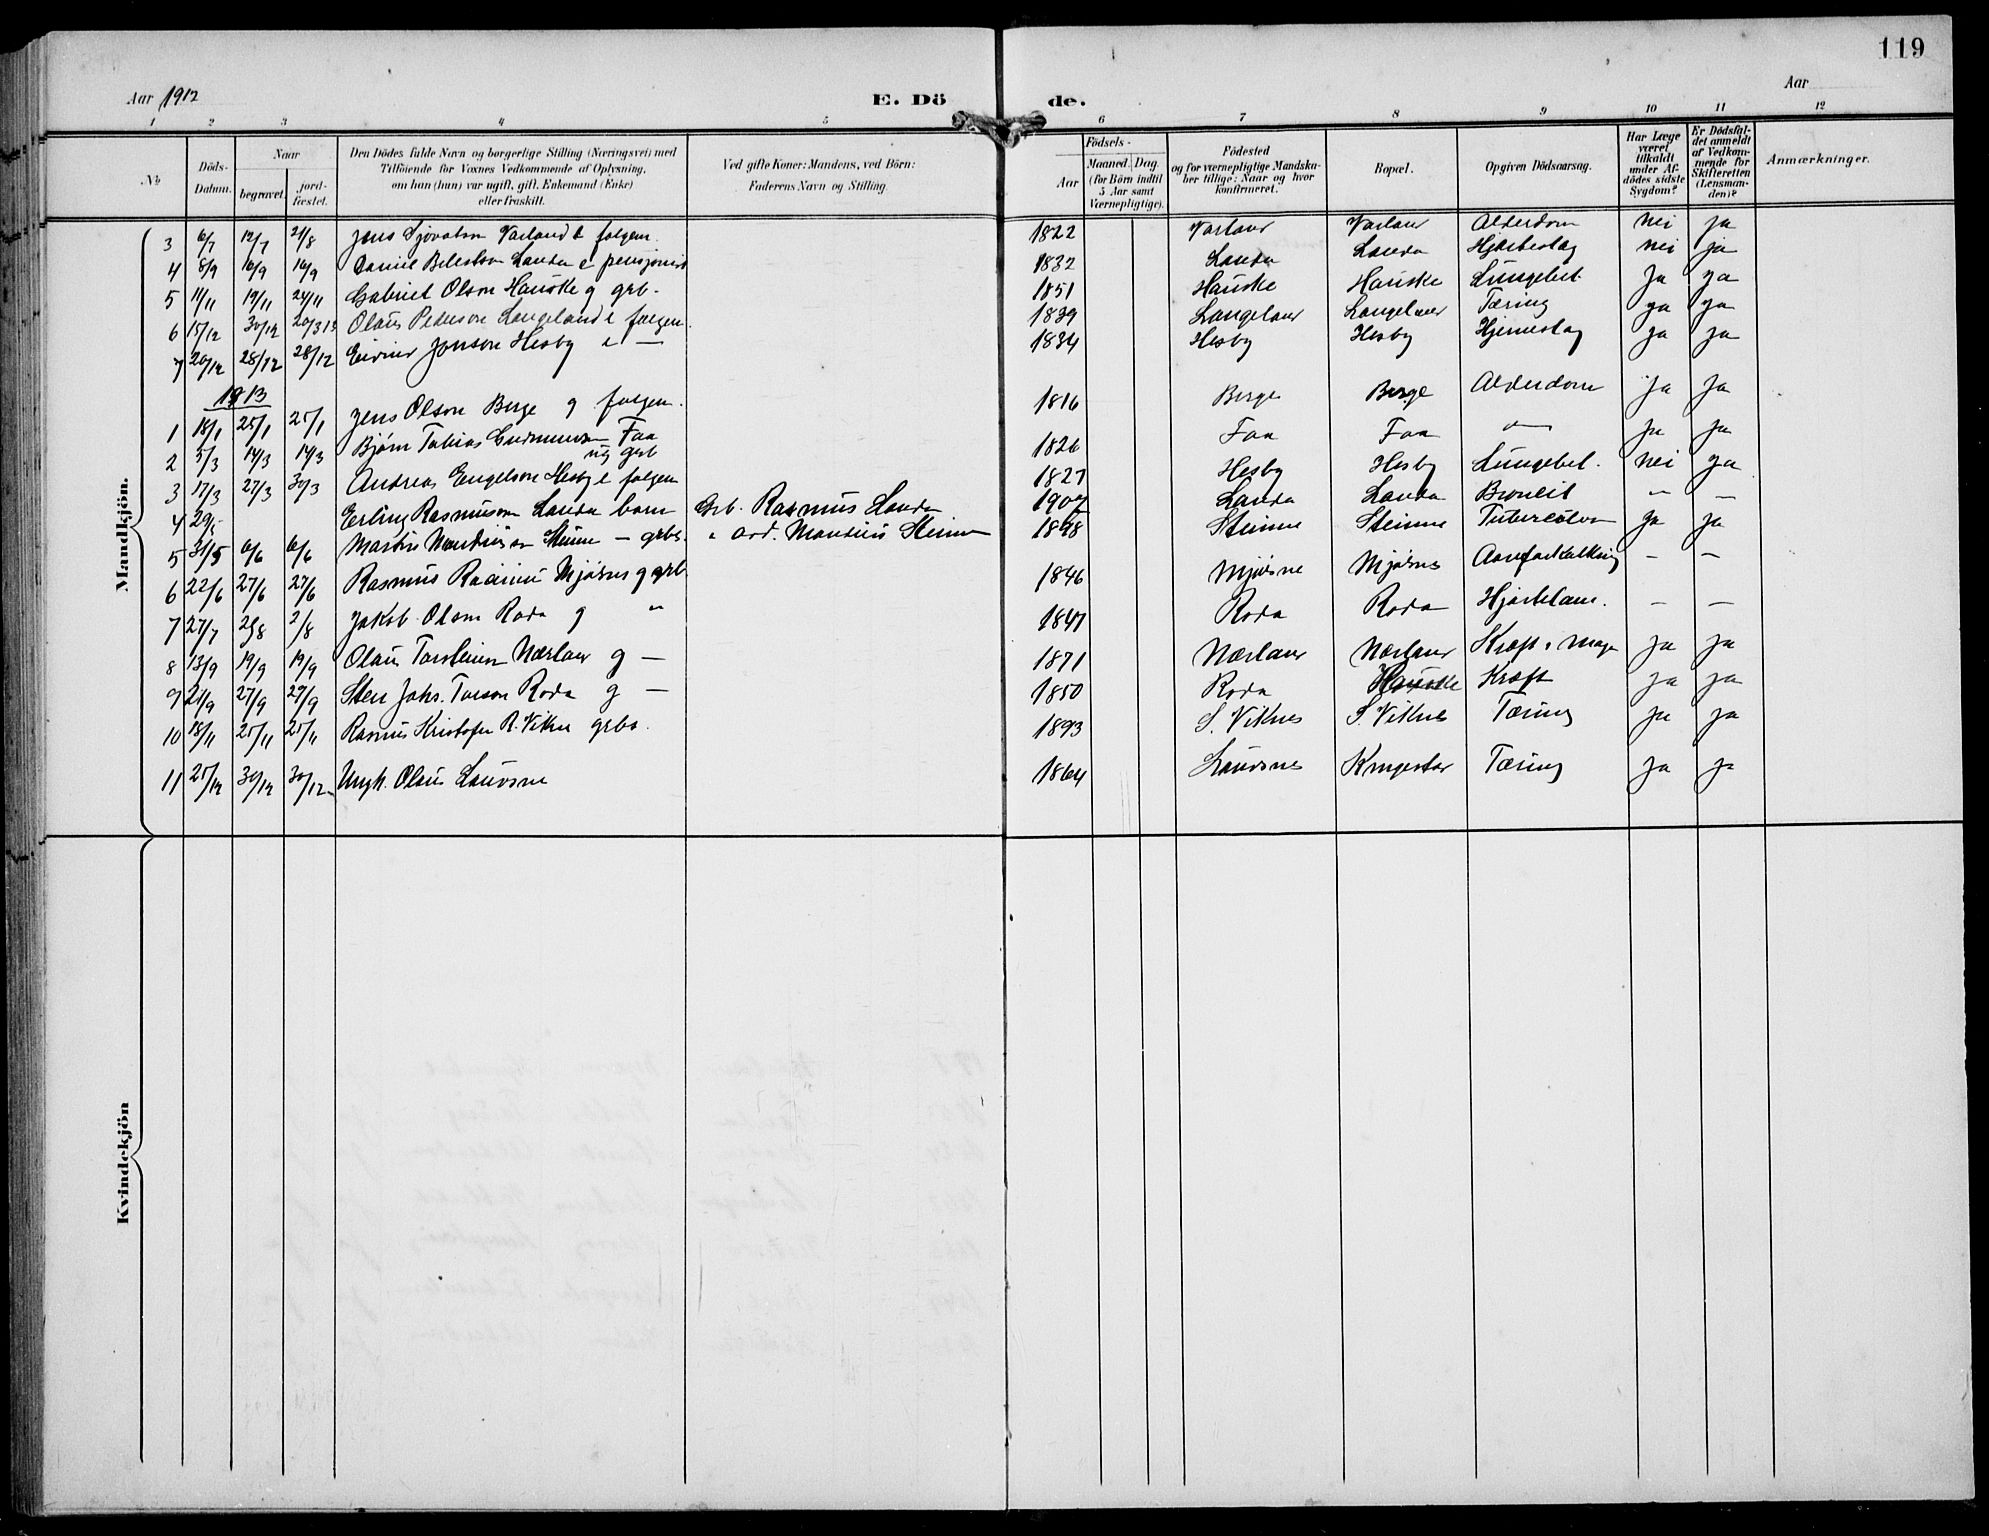 119
Aar 1912
E. Dö
de.
Aar
1 2 3 4 5 6 7 8 9 10 11 12
No
Döds-Datum.
Naar
begravet.
jord-fæstet.
Den Dödes fulde Navn og borgerlige Stilling (Næringsvei) med
Tilföiende for Voxnes Vedkommende af Oplysning,
om han (hun) var ugift, gift, Enkemand (Enke)
eller fraskilt.
Ved gifte Koner: Mandens, ved Börn:
Faderens Navn og Stilling.
Födsels-
Aar
Maaned. Dag.
(for Börn indtil
5 Aar samt
Værnepligtige).
Födested
og for værnepligtige Mandska-
ber tillige: Naar og hvor
konfirmeret.
Bopæl.
Opgiven Dödsaarsag.
Har Læge
været
tilkaldt
under Af-
dödes sidste
Sygdom?
Er Dödsfal-
det anmeldt
af Vedkom-
mende for
Skifteretten
(Lensman-
den)?
Anmærkninger.
Mandkjön.
3 6/7 12/7 21/8 Jens Varland e folgem. 1822 Varland Varland Alderdom nei ja
4 8/9 16/9 16/9 Daniel Landa e pensjonist 1832 Landa Landa Hjerteslag nei ja
5 11/11 19/11 24/11 Gabriel Olson Hauske g grb. 1851 Hauske Hauske Lungebet ja ja
6 15/12 30/12 20/3 13 Olaus Pederson Langeland e folgem 1839 Langeland Langeland Tæring ja ja
7 20/12 28/12 28/12 Eivind Jonson Hesby e — 1834 Hesby Hesby Hjerneslag ja ja
1913
1 18/1 25/1 25/1 Jens Olson Berge g folgem. 1816 Berge Berge Alderdom ja ja
2 5/3 14/3 14/3 Bjørn Tobias Gudmunson Faa 1826 Faa Faa — ja ja
ug grb
3 17/3 27/3 30/3 Andreas Engelson Hesby e folgem 1827 Hesby Hesby Lungebet. nei ja
4 29/5 Erling Rasmuson Landa barn Grb. Rasmus Landa 1907 Landa Landa Bronkit " —
5 31/5 6/6 6/6 Martin Steinne — grbs. " ord. Steinne 1898 Steinne Steinne Tuberculon ja ja
6 22/6 27/6 27/6 Rasmus Mjøsne g grb 1846 Mjøsne Mjøsne Aareforkalkning — —
7 27/7 2/8 2/8 Jakob Olson Roda g " 1847 Roda Roda Hjertelam. — —
8 13/9 19/9 19/9 Olaus Torsteinson Nærland g — 1871 Nærland Nærland Kræft i mage ja ja
9 21/9 27/9 27/9 Sten Johs. Torson Roda g — 1850 Roda Hauske Kræft ja ja
10 18/11 25/11 25/11 Rasmus Kristofer R. Vikne grbs. 1893 S. Viknes S. Viknes Tæring ja ja
11 25/12 30/12 30/12 Ungk. Olaus Lauvsne 1864 Lauvsnes Kingestad Tæring ja ja
Kvindekjön